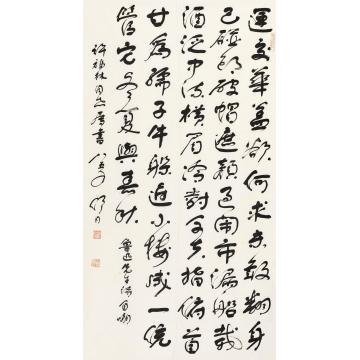 運交華蓋欲何求未敢翻身
已碰頭破帽遮顏過鬧市漏船載
酒泛中流橫眉冷對千夫指俯首
甘為孺子牛躲進小樓成一統
管它冬夏與春秋 魯迅先生詩自嘲
林同志屬書 八五年